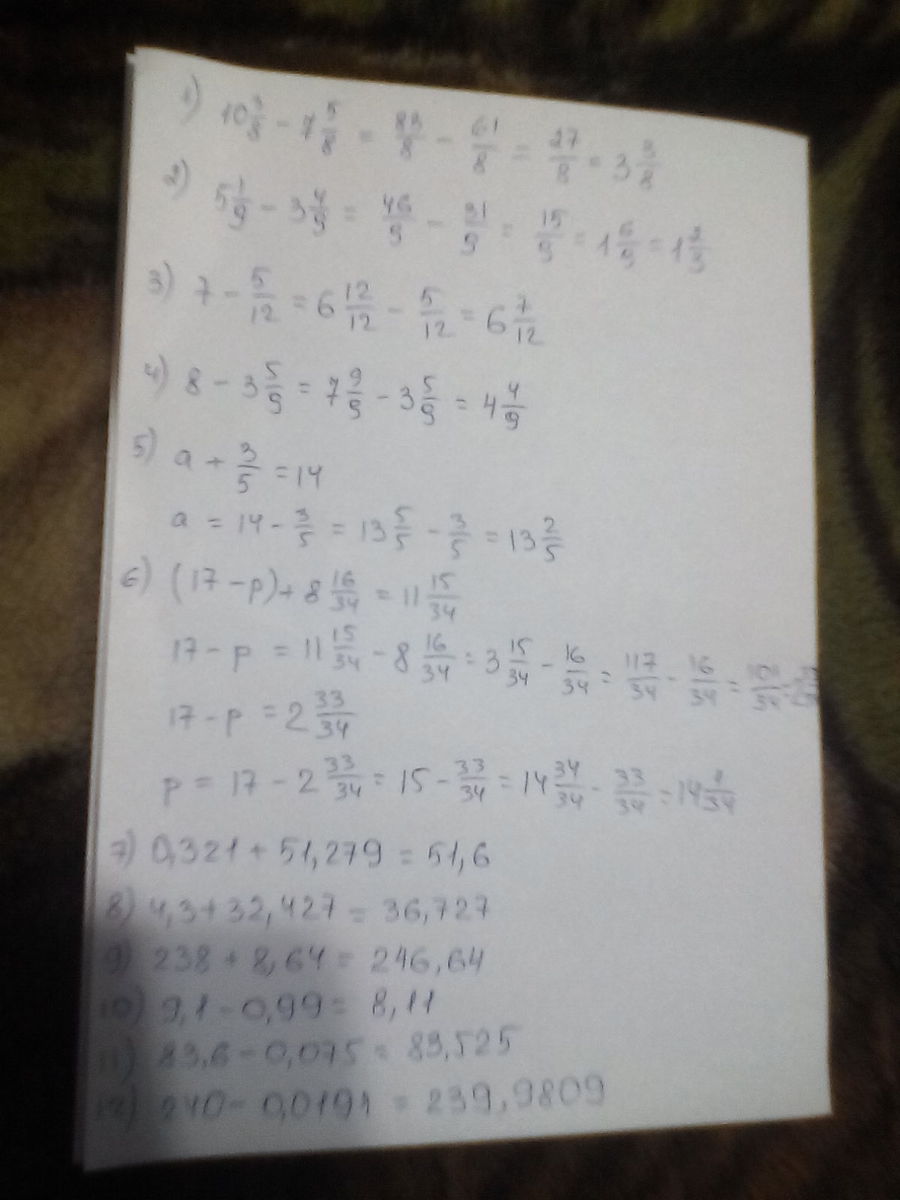 1) 10 3/8 - 7 5/8 = 83/8 - 61/8 = 27/8 = 3 3/8
2) 5 1/9 - 3 4/9 = 46/9 - 31/9 = 15/9 = 1 6/9 = 1 2/3
3) 7 - 5/12 = 6 12/12 - 5/12 = 6 7/12
4) 8 - 3 5/9 = 7 9/9 - 3 5/9 = 4 4/9
5) a + 3/5 = 14
a = 14 - 3/5 = 13 5/5 - 3/5 = 13 2/5
6) (17 - p) + 8 16/34 = 11 15/34
17 - p = 11 15/34 - 8 16/34 = 3 15/34 - 16/34 = 117/34 - 16/34 = 101/34
17 - p = 2 33/34
p = 17 - 2 33/34 = 15 - 33/34 = 14 34/34 - 33/34 = 14 1/34
7) 0,321 + 51,279 = 51,6
8) 4,3 + 32,427 = 36,727
9) 238 + 8,64 = 246,64
10) 9,1 - 0,99 = 8,11
11) 83,6 - 0,075 = 83,525
12) 240 - 0,0191 = 239,9809